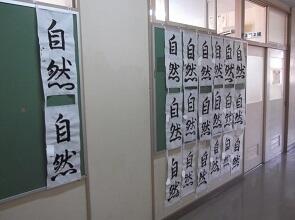 自然
自然
自然
自然
自然
自然
自然
自然
自然
自然
自然
自然
自然
自然
自然
自然
自然
自然
自然
自然